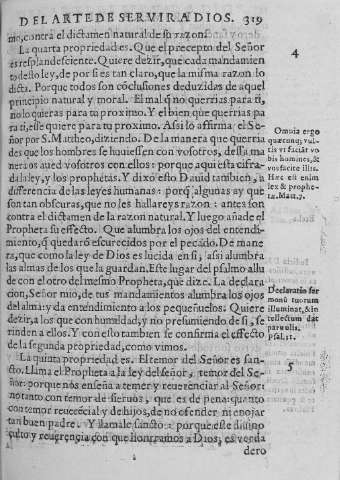 DEL ARTE DE SERVIR A DIOS. 319
nio, contra el dictamen natural de su razon.
La quarta propriedad es. Que el precepto del Señor
es resplandesciente. Quiere dezir, que cada mandamien
to desto ley, de por si es tan claro, que la misma razon lo
dicta. Porque todos son cõclusiones deduzidas de aquel
principio natural y moral. El mal q̃ no querrias para ti,
no lo quieras para tu proximo. Y el bien que querrias pa
ra ti, esse quiere para tu proximo. Assi lo affirma el Se-
ñor por S. Mattheo, diziendo. De la manera que querria
des que los hombres se huuiessen con vosotros, dessa ma
nera os aued vosotros con ellos: porque aqui esta cifra-
da la ley, y los prophetas. Y dixo esto Dauid tambien, a
differencia de las leyes humanas: porq̃ algunas ay que
son tan obscuras, que no les hallareys razon: antes son
contra el dictamen de la razon natural. Y luego añade el
Propheta su effecto. Que alumbra los ojos del entendi-
miento, q̃ quedarõ escurecidos por el pecado. De mane
ra, que como la ley de Dios es lucida en si, assi alumbra
las almas de los que la guardan. Este lugar del psalmo allu
de con el otro del mesmo Propheta, que dize. La declara
cion, Señor mio, de tus mandamientos alumbra los ojos
del alma: y da entendimiento a los pequeñuelos. Quiere
dezir, a los que con humildad, y no presumiendo de si, se
rinden a ellos. Y con esto tambien se confirma el effecto
de la segunda propriedad, como vimos.
La quinta propriedad es. El temor del Señor es san-
cto. Llama el Propheta a la ley del señor, temor del Se-
ñor: porque nos enseña a temer y reuerenciar al Señor:
no tanto con temor de sieruos, que es de pena: quanto
con temor reuerẽcial y de hijos, de no ofender ni enojar
tan buen padre. Y llamale sancto: porque este diuino
culto y reuerencia con que honramos a Dios, es verda
dero
4
Omnia ergo
quæcunq; vul-
tis vt faciāt vo
bis homines, &
vos facite illis.
Hæc est enim
lex & prophe-
tæ. Matt. 7.
Declaratio ser
monũ tuorum
illuminat, & in
tellectum dat
paruulis.
Psal. 118.
5